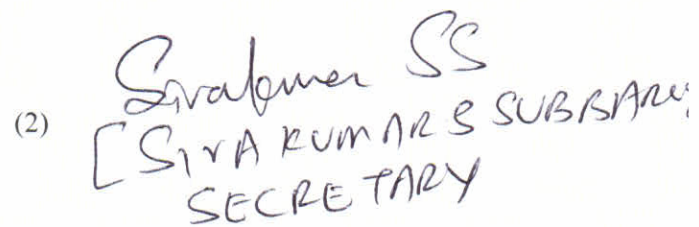 (2) Sivakumar SS
[SIVA KUMAR S SUBBARU
SECRETARY